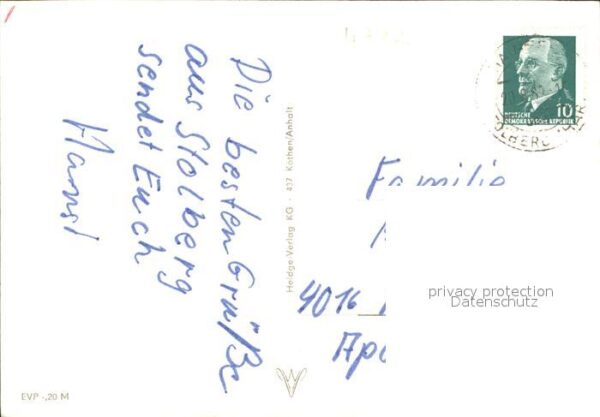 Die besten Grüße
aus Stolberg
sendet Euch
Hansl
Heldge-Verlag KG · 437 Köthen/Anhalt
EVP -,20 M
10
DEUTSCHE
DEMOKRATISCHE REPUBLIK
Familie
4016
privacy protection
Datenschutz